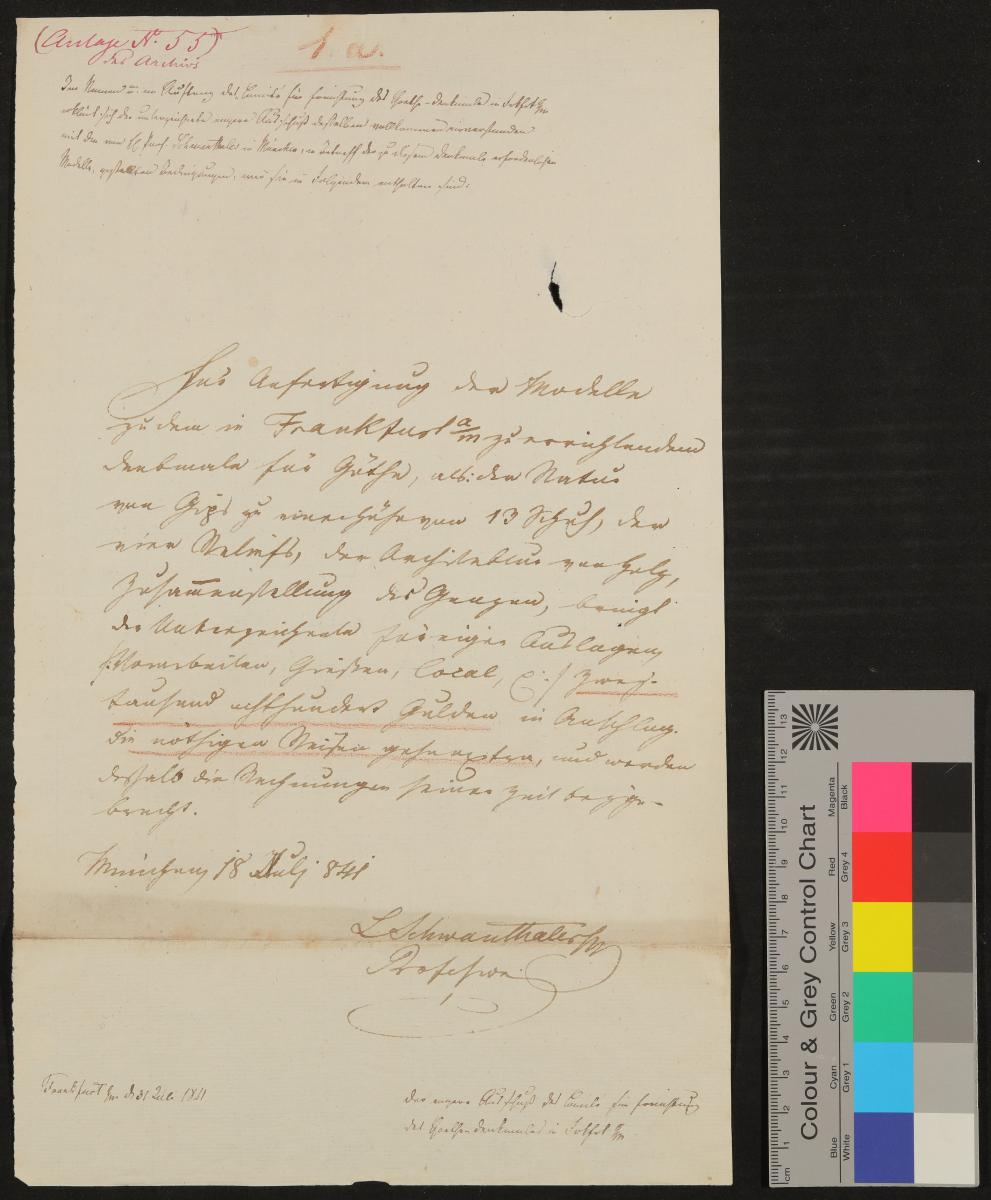 (Anlage No. 55)
des Archivs
1. a.
Im Namen u. im Auftrag des Comités für Errichtung des Goethe-Denkmales in Frkfrt a/m
erklärt sich der unterzeichnete engere Ausschuß desselben vollkommen einverstanden
mit den von H. Prof. Schwanthaler in München, in Betreff der zu diesem Denkmale erforderlichen
Modelle, gestellten Bedingungen, wie sie in Folgendem enthalten sind:
Für Anfertigung der Modelle
zu dem in Frankfurt a/m zu errichtenden
Denkmale für Göthe, als: der Statue
von Gips zu einer Höhe von 13 Schuh, der
vier Reliefs, der Architektur von Holz,
Zusammenstellung des Ganzen, bringt
der Unterzeichnete für eigene Auslagen,
Vorarbeiten, Giessen, Local, zwei-
tausend achthundert Gulden in Anschlag.
Die nöthigen Reisen gehen extra, und werden
deßhalb die Rechnungen seiner Zeit beyge-
bracht.
München, 18 Julj 841
L Schwanthaler
Professor
Frankfurt a/m d. 31 Juli 1841
Der engere Ausschuß des Comités für Errichtung
des Goethe-denkmales in Frkfrt a/m